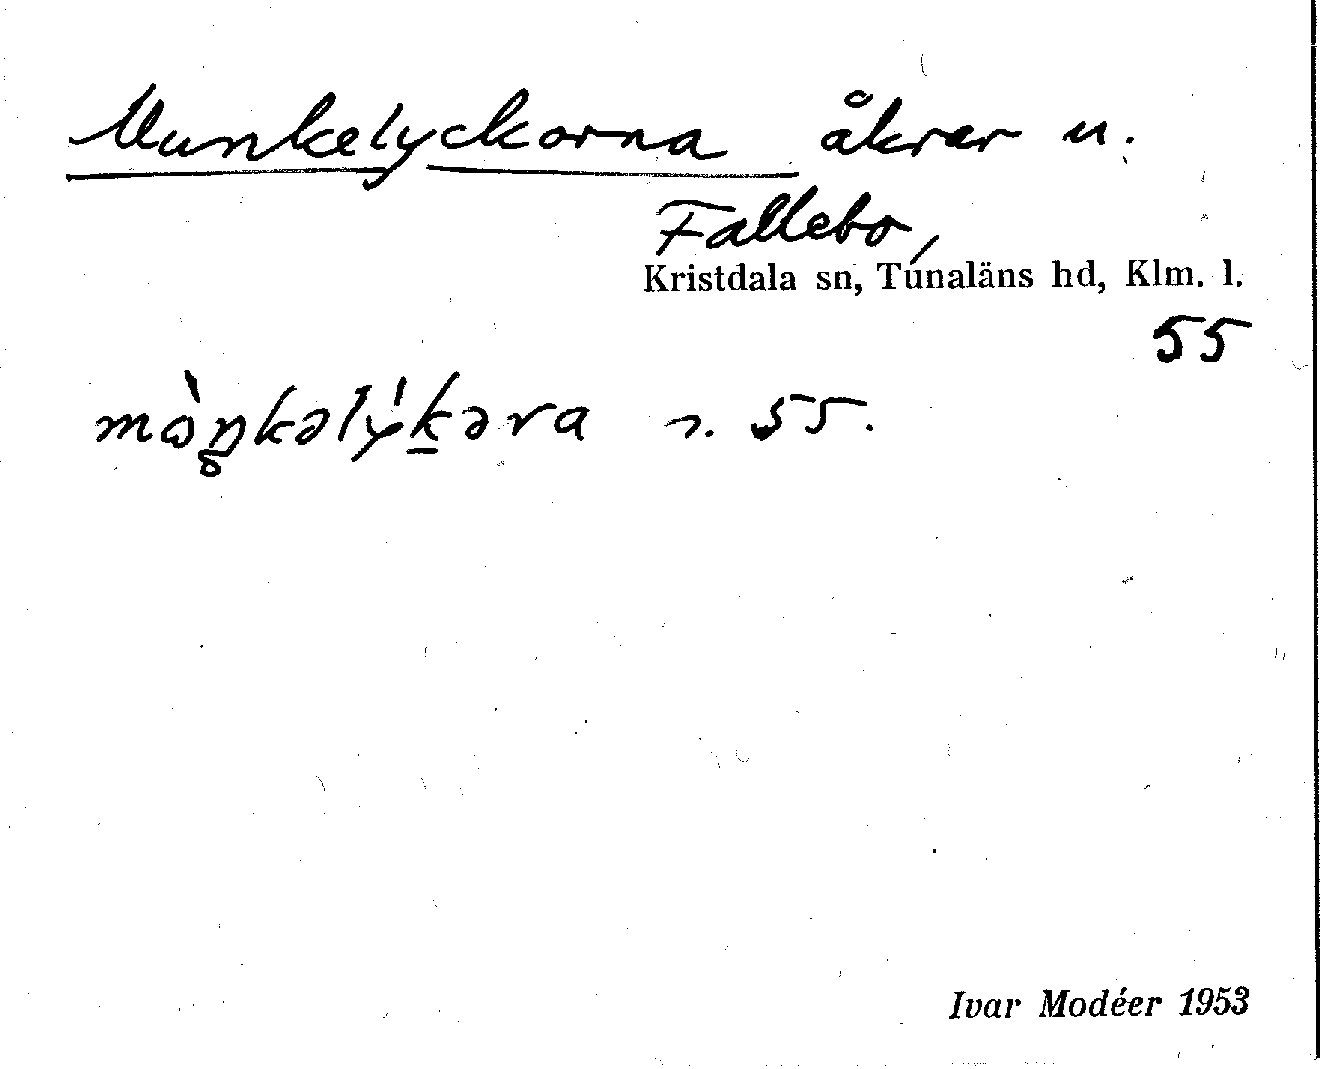 Munkelyckorna åkrar u.
Fallebo,
Kristdala sn, Tunaläns hd, Klm. l.
55
mòŋkəlýk̲əra n. 55.
Ivar Modéer 1953